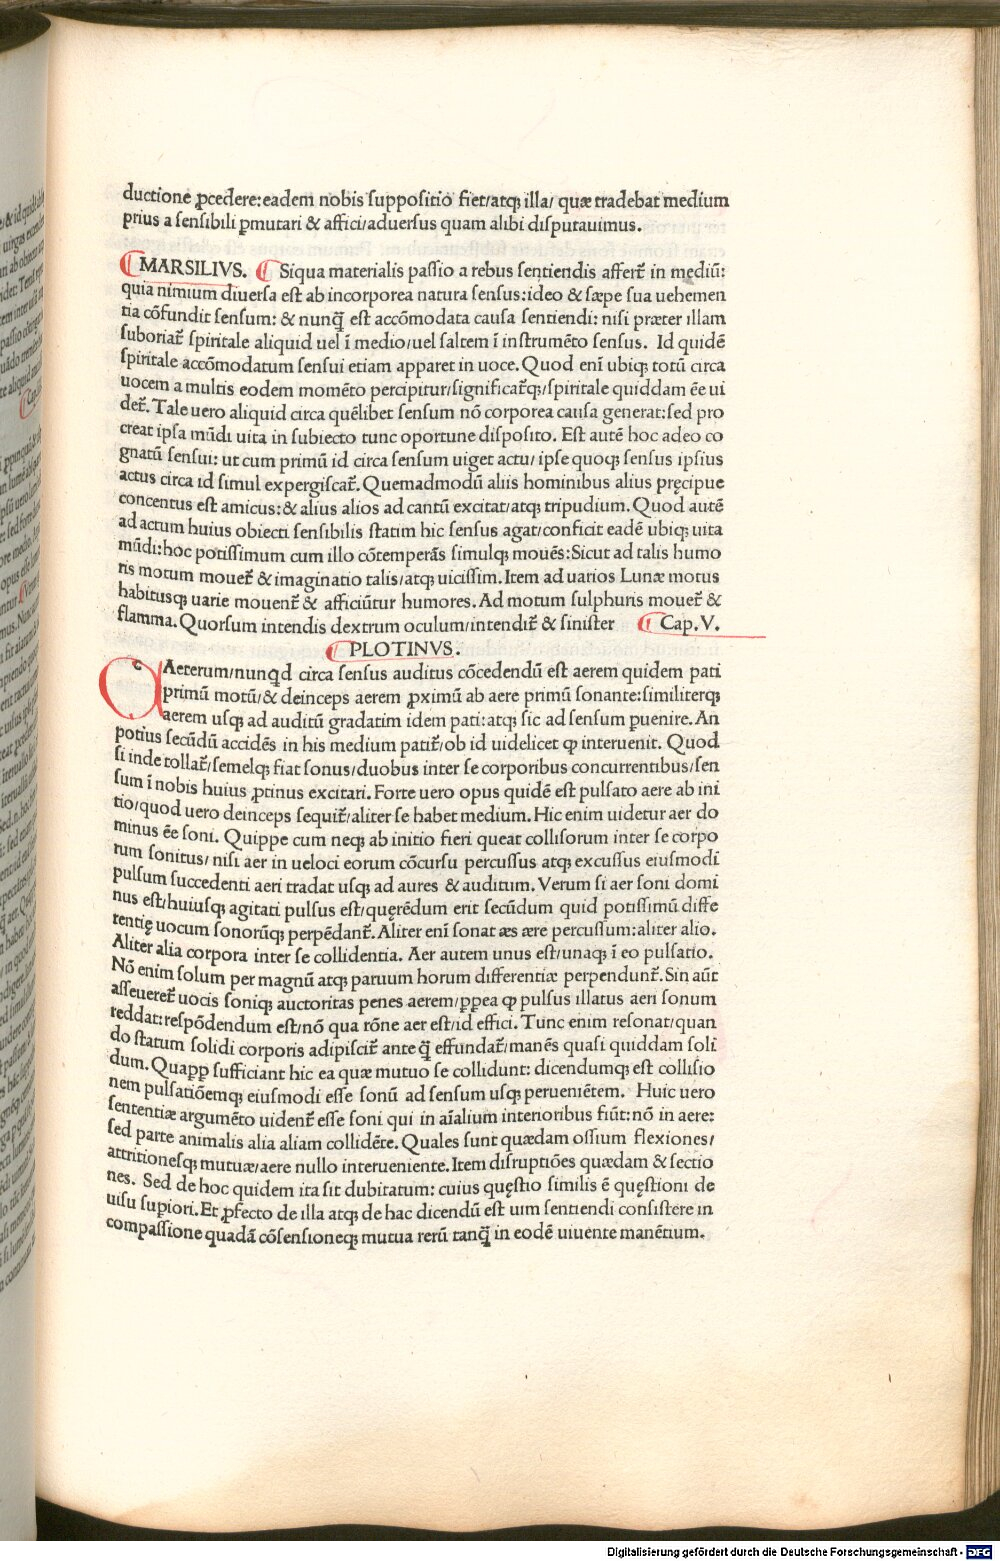 ductione ꝓcedere: eadem nobis ſuppoſitio fiet/atqꝫ illa/ quæ tradebat medium
prius a ſenſibili ꝑmutari & affici/aduerſus quam alibi diſputauimus.
MARSILIVS. Siqua materialis paſſio a rebus ſentiendis affert᷑ in mediū:
quia nimium diuerſa eſt ab incorporea natura ſenſus: ideo & ſæpe ſua uehemen
tia cōfundit ſenſum: & nunq̄ eſt accōmodata cauſa ſentiendi: niſi præter illam
ſuboriat᷑ ſpiritale aliquid uel ī medio/uel ſaltem ī inſtrumēto ſenſus. Id quidē
ſpiritale accōmodatum ſenſui etiam apparet in uoce. Quod enī ubiqꝫ totū circa
uocem a multis eodem momēto percipitur/ſignificat᷑qꝫ/ſpiritale quiddam ēe ui
det᷑. Tale uero aliquid circa quēlibet ſenſum nō corporea cauſa generat: ſed pro
creat ipſa mūdi uita in ſubiecto tunc oportune diſpoſito. Eſt autē hoc adeo co
gnatū ſenſui: ut cum primū id circa ſenſum uiget actu/ ipſe quoqꝫ ſenſus ipſius
actus circa id ſimul expergiſcat᷑. Quemadmodū aliis hominibus alius pręcipue
concentus eſt amicus: & alius alios ad cantū excitat/atqꝫ tripudium. Quod autē
ad actum huius obiecti ſenſibilis ſtatim hic ſenſus agat/conficit eadē ubiqꝫ uita
mūdi: hoc potiſſimum cum illo cōtemperās ſimulqꝫ mouēs: Sicut ad talis humo
ris motum mouet᷑ & imaginatio talis/atqꝫ uiciſſim. Item ad uarios Lunæ motus
habitusqꝫ uarie mouent᷑ & afficiūtur humores. Ad motum ſulphuris mouet᷑ &
flamma. Quorſum intendis dextrum oculum/intendit᷑ & ſiniſter Cap. V.
PLOTINVS.
CAeterum/nunqd circa ſenſus auditus cōcedendū eſt aerem quidem pati
primū motū/& deinceps aerem ꝓximū ab aere primū ſonante: ſimiliterqꝫ
aerem uſqꝫ ad auditū gradatim idem pati: atqꝫ ſic ad ſenſum ꝑuenire. An
potius ſecūdū accidēs in his medium patit᷑/ob id uidelicet ꝙ interuenit. Quod
ſi inde tollat᷑/ſemelqꝫ fiat ſonus/duobus inter ſe corporibus concurrentibus/ſen
ſum ī nobis huius ꝓtinus excitari. Forte uero opus quidē eſt pulſato aere ab ini
tio/quod uero deinceps ſequit᷑/aliter ſe habet medium. Hic enim uidetur aer do
minus ēe ſoni. Quippe cum neqꝫ ab initio fieri queat colliſorum inter ſe corpo
rum ſonitus/ niſi aer in ueloci eorum cōcurſu percuſſus atqꝫ excuſſus eiuſmodi
pulſum ſuccedenti aeri tradat uſqꝫ ad aures & auditum. Verum ſi aer ſoni domi
nus eſt/huiuſqꝫ agitati pulſus eſt/quęrēdum erit ſecūdum quid potiſſimū diffe
rentię uocum ſonorūqꝫ perpēdant᷑. Aliter enī ſonat æs ære percuſſum: aliter alio.
Aliter alia corpora inter ſe collidentia. Aer autem unus eſt/unaqꝫ ī eo pulſatio.
Nō enim ſolum per magnū atqꝫ paruum horum differentiæ perpendunt᷑. Sin aūt
aſſeueret᷑ uocis ſoniqꝫ auctoritas penes aerem/ꝓpea ꝙ pulſus illatus aeri ſonum
reddat: reſpōdendum eſt/nō qua rōne aer eſt/id effici. Tunc enim reſonat/quan
do ſtatum ſolidi corporis adipiſcit᷑ ante q̄ effundat᷑/manēs quaſi quiddam ſoli
dum. Quapꝓp ſufficiant hic ea quæ mutuo ſe collidunt: dicendumqꝫ eſt colliſio
nem pulſatiōemqꝫ eiuſmodi eſſe ſonū ad ſenſum uſqꝫ perueniētem. Huic uero
ſententiæ argumēto uident᷑ eſſe ſoni qui in aīalium interioribus fiūt: nō in aere:
ſed parte animalis alia aliam collidēte. Quales ſunt quædam oſſium flexiones/
attritioneſqꝫ mutuæ/aere nullo interueniente. Item diſruptiōes quædam & ſectio
nes. Sed de hoc quidem ita ſit dubitatum: cuius quęſtio ſimilis ē quęſtioni de
uiſu ſuꝑiori. Et ꝓfecto de illa atqꝫ de hac dicendū eſt uim ſentiendi conſiſtere in
compaſſione quadā cōſenſioneqꝫ mutua rerū tanq̄ in eodē uiuente manētium.
Digitalisierung gefördert durch die Deutsche Forschungsgemeinschaft - DFG